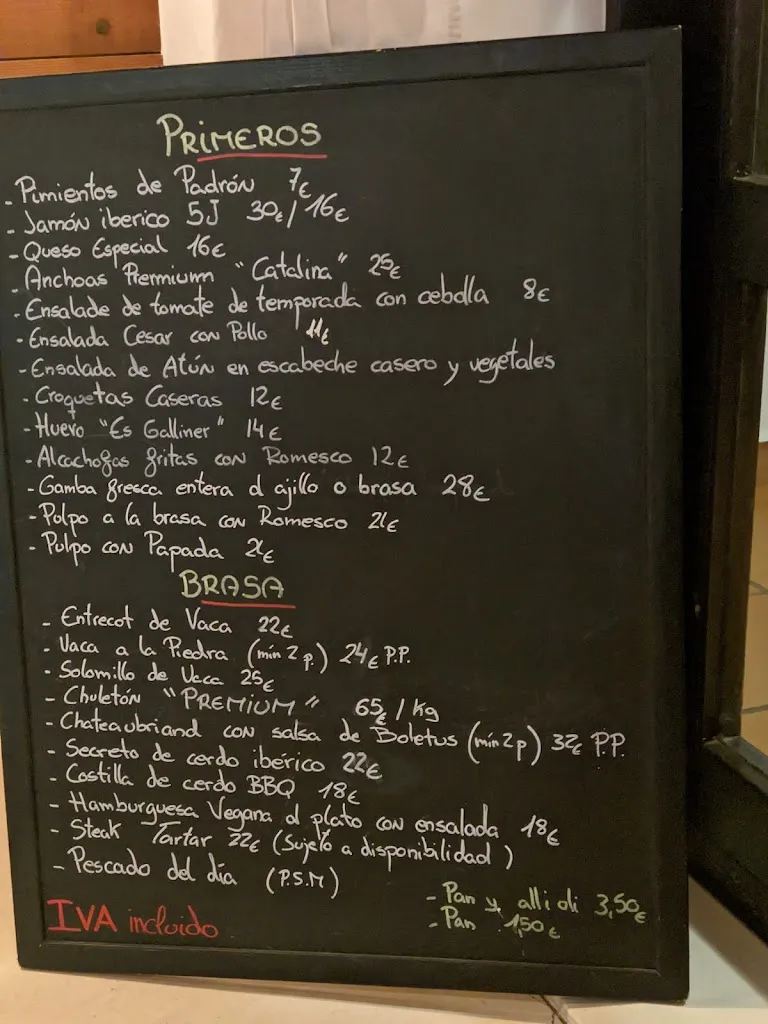 PRiMEROS
- Pimientos de Padrón 7€
- Jamón iberico 5J 30€/16€
- Queso Especial 16€
- Anchoas Premium "Catalina" 25€
- Ensalade de tomate de temporada con cebolla 8€
- Ensalada Cesar con Pollo 11€
- Ensalada de Atún en escabeche casero y vegetales
- Croquetas Caseras 12€
- Huevo "Es Galliner" 14€
- Alcachofas fritas con Romesco 12€
- Gamba fresca entera al ajillo o brasa 28€
- Pulpo a la brasa con Romesco 21€
- Pulpo con Papada 21€
BRASA
- Entrecot de Vaca 22€
- Vaca a la Piedra (min 2 p.) 24€ P.P.
- Solomillo de Vaca 25€
- Chuletón "PREMiUM" 65€/Kg
- Chateaubriand con salsa de Boletus (min 2p) 32€ P.P.
- Secreto de cerdo ibérico 22€
- Costilla de cerdo BBQ 18€
- Hamburguesa Vegana al plato con ensalada 18€
- Steak Tartar 22€ (Sujeto a disponibilidad)
- Pescado del día (P.S.M)
- Pan y alli oli 3,50€
- Pan 1,50€
IVA incluido